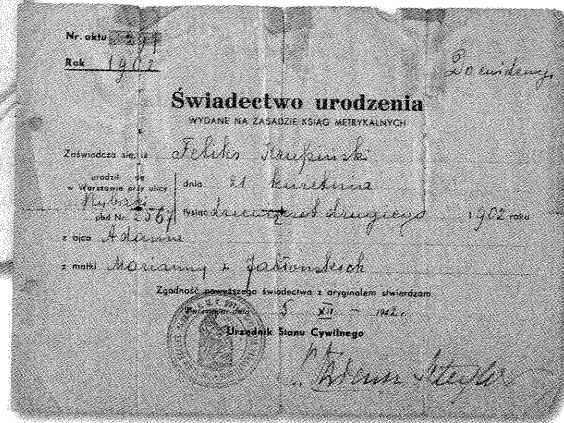 Nr. aktu
Rok 1902
Do ewidencji
Świadectwo urodzenia
WYDANE NA ZASADZIE KSIĄG METRYKALNYCH
Zaświadcza się, iż Feliks Krupinski
urodził się
w Warszawie przy ulicy
Rybaki
pod Nr. 2567
dnia 21 kwietnia
tysiąc dziewięćset drugiego 1902 roku
z ojca Adama
z matki Marianny z Jabłonskich
Zgodność powyższego świadectwa z oryginałem stwierdzam.
Warszawa, dnia 5 XII - 1942 r.
Urzędnik Stanu Cywilnego